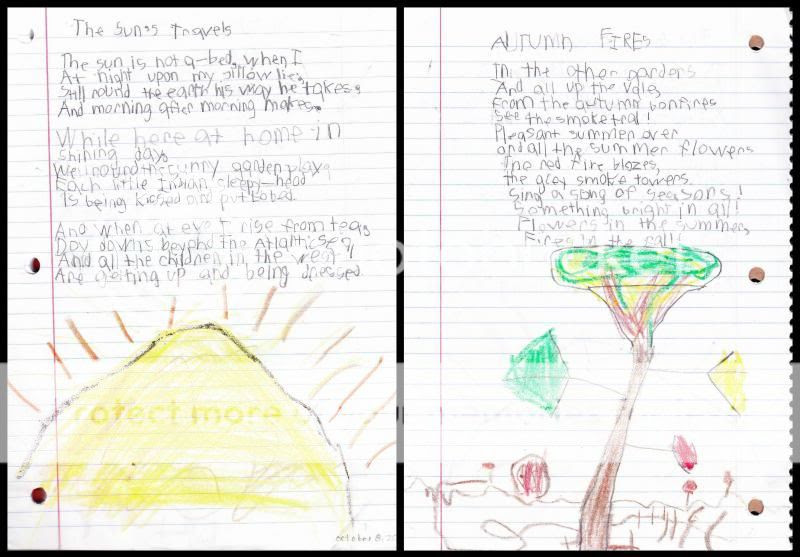 The Sun's Travels
The sun is not a-bed, when I
At night upon my pillow lie,
Still round the earth his way he takes,
And morning after morning makes.
While here at home in
shining day,
We round the sunny garden play,
Each little Indian sleepy-head
Is being kissed and put to bed.
And when at eve I rise from tea,
Day dawns beyond the Atlantic sea,
And all the children in the west
Are getting up and being dressed.
rotect more
october 8, 20
AUTUMN FIRES
In the other gardens
And all up the vale,
From the autumn bonfires
See the smoke trail!
Pleasant summer over
and all the summer flowers
The red fire blazes,
the grey smoke towers.
Sing a song of seasons!
Something bright in all!
Flowers in the summer,
Fires in the fall!